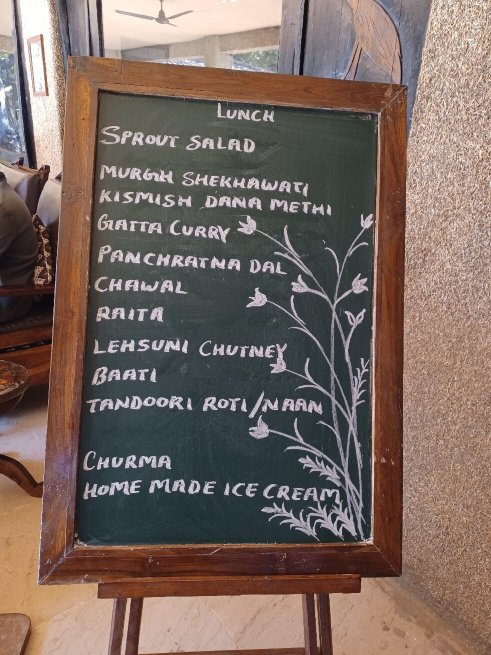 LUNCH
SPROUT SALAD
MURGH SHEKHAWATI
KISMISH DANA METHI
GATTA CURRY
PANCHRATNA DAL
CHAWAL
RAITA
LEHSUNI CHUTNEY
BAATI
TANDOORI ROTI/NAAN
CHURMA
HOME MADE ICE CREAM